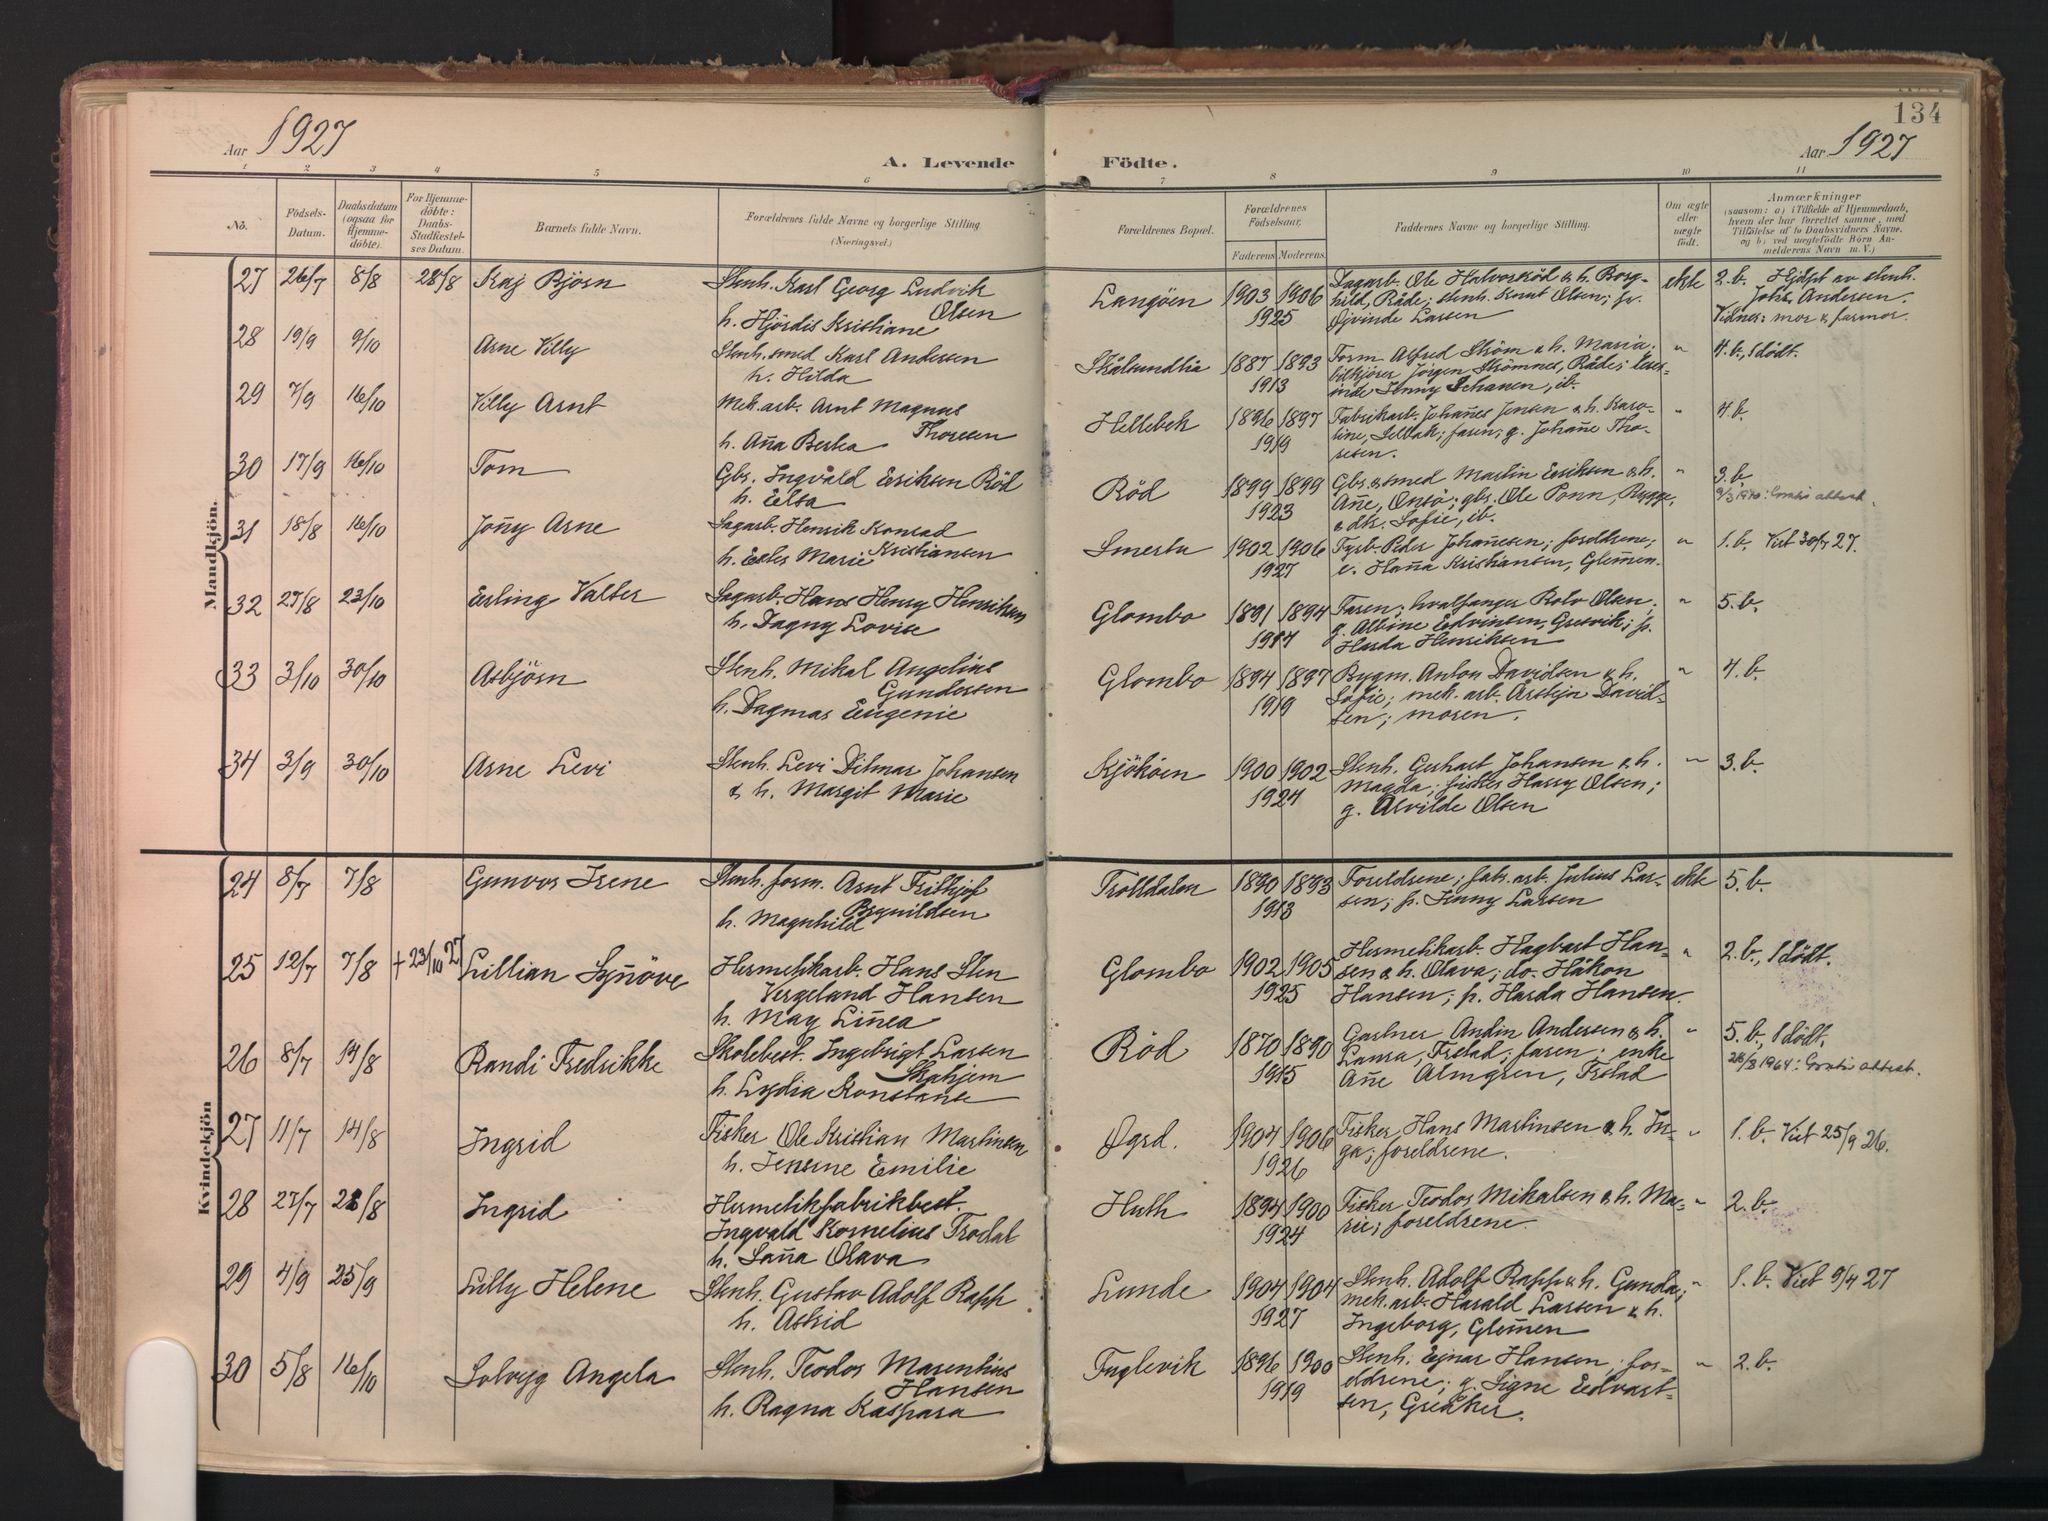 134
Aar 1927
A. Levende Födte.
Aar 1927
1 2 3 4 5 6 7 8 9 10 11
No.
Födsels-Datum.
Daabsdatum (ogsaa for Hjemmedöbte).
For Hjemmedöbte: Daabs-Stadfæstelses Datum.
Barnets fulde Navn.
Forældrenes fulde Navne og borgerlige Stilling (Næringsvei.)
Forældrenes Bopæl.
Forældrenes Födselsaar.
Faderens. Moderens.
Faddernes Navne og borgerlige Stilling.
Om ægte eller uægte födt.
Anmærkninger
(saasom: a) i Tilfælde af Hjemmedaab, hvem der har forrettet samme, med Tilföielse af to Daabsvidners Navne, og b) ved uægtefödte Börn Anmelderens Navn m. V.)
Mandkjön.
27 26/7 8/8 28/8 Kaj Bjørn
Stenh. Karl Georg Ludvik Olsen
h. Hjördis Kristiane
Langöen 1903 1906 1925
Dagarb. Ole Halvorsröd & h. Borg-
hild, Råde; stenh. Knut Olsen; p.
Øjvinde Larsen
ekte 2. b. Hjdpt av stenh.
Johs. Andersen.
Vidner: mor & farmor.
28 19/9 9/10 Arne Villy
Stenh. smed Karl Andersen
h. Hilda
Skålsundlia 1887 1893 1913
Form. Alfred Ström & h. Maria;
bilkjörer Jörgen Strömnes, Råde;
Jenny Johansen, ib.
" 4. b., 1 dödt.
29 7/9 16/10 Villy Arnt
Mek. arb. Arnt Magnus Thoresen
h. Aña Berta
Hellebek 1896 1897 1919
Fabrikarb. Johañes Jensen & h. Karo-
line, Selbak; faren; g. Johañe Tho-
resen.
" 4. b.
30 17/9 16/10 Tom
Gbr. Ingvald Eriksen Röd
h. Elsa
Röd 1899 1899 1923
Gbr. & smed Martin Eriksen & h.
Añe, Onsö; gbr. Ole Ponn, Rygge,
& dtr. Sofie, ib.
" 3. b.
9/3 1970: Gratis attest.
31 18/8 16/10 Joñy Arne
Sagarb. Henrik Konrad Kristiansen
h. Ester Marie
Smertu 1902 1906 1927
Fyrb. Peder Johañesen; foreldrene;
e. Haña Kristiansen, Glem̃en.
" 1. b. Viet 30/7 27.
32 27/8 23/10 Erling Valter
Sagarb. Hans Henry Henriksen
h. Dagny Lovise
Glombo 1891 1894 1914
Faren; hvalfanger Rolv Olsen;
g. Albine Edvinsen, Gresvik; p.
Harda Henriksen
" 5. b.
33 3/10 30/10 Asbjörn
Stenh. Mikal Angelius Gundersen
h. Dagmar Eugenie
Glombo 1894 1897 1919
Bygm. Anton Davidsen & h.
Sofie; mek. arb. David-
sen; moren.
" 4. b.
34 3/9 30/10 Arne Levi
Stenh. Levi Ditmar Johansen
& h. Margit Marie
Kjököen 1900 1902 1924
Stenh. Gerhart Johansen & h.
Magda; fisker Harry Olsen;
g. Alvilde Olsen
" 3. b.
Kvindekjön
24 8/7 7/8 Gunvor Irene
Stenh. form. Arnt Fritjof Brynildsen
h. Magnhild
Trolldalen 1890 1893 1913
Foreldrene; fabr. arb. Julius Lar-
sen; p. Jenny Larsen
ekte 5. b.
25 12/7 7/8 † 23/10 27 Lillian Syñöve
Hermetikarb. Hans Sten
Vergeland Hansen
h. May Liñea
Glombo 1902 1905 1925
Hermetikarb. Hagbart Han-
sen & h. Olava; do. Håkon
Hansen; p. Harda Hansen.
" 2. b., 1 dödt.
26 8/7 14/8 Randi Fredrikke
Skolebest. Ingebrigt Larsen Skahjem
h. Lydia Konstanse
Röd 1870 1890 1915
Gartner Andin Andersen & h.
Laura, Frstad; faren; enke
Añe Almgren, Frstad
" 5. b., 1 dödt.
26/3 1964: Gratis attest.
27 11/7 14/8 Ingrid
Fisker Ole Kristian Martinsen
h. Jensine Emilie
Øgrd. 1904 1906 1926
Fisker Hans Martinsen & h. In-
ga; foreldrene.
" 1. b. Viet 25/9 26.
28 27/7 28/8 Ingrid
Hermetikfabrikbest.
Ingvald Kornelius Frodal
h. Saña Olava
Huth 1894 1900 1924
Fisker Teodor Mikalsen & h. Ma-
rie; foreldrene
" 2. b.
29 4/9 25/9 Lilly Helene
Stenh. Gustav Adolf Rapp
h. Astrid
Lunde 1904 1904 1927
Stenh. Adolf Rapp & h. Gunda;
mek. arb. Harald Larsen & h.
Ingeborg, Glem̃en
" 1. b. Viet 9/4 27
30 5/8 16/10 Solveyg Angela
Stenh. Teodor Marenius Hansen
h. Ragna Kaspara
Fuglevik 1896 1900 1919
Stenh. Ejnar Hansen; for-
eldrene; g. Signe Edvart-
sen, Greåker.
" 2. b.